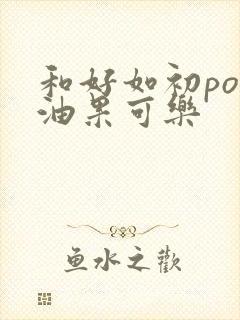 和好如初po
油果可樂
鱼水之歡